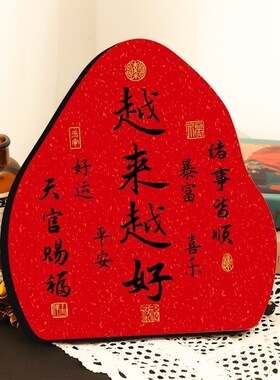 越来越好
诸事皆顺
暴富
喜乐
好运
平安
天官赐福